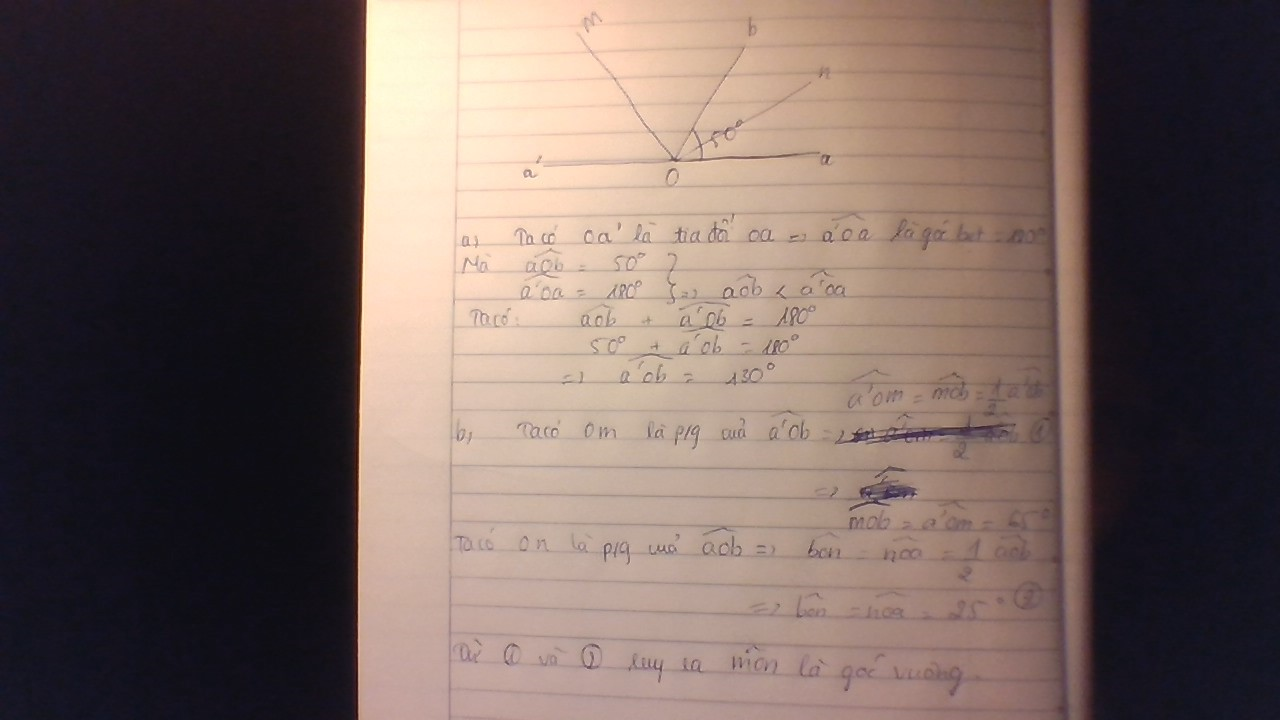 m
b
n
50°
a'
O
a
a, Ta có Oa' là tia đối Oa => a'Oa là góc bẹt = 180°
Mà aOb = 50° }
a'Oa = 180° } => aOb < a'Oa
Ta có: aOb + a'Ob = 180°
50° + a'Ob = 180°
=> a'Ob = 130°
a'Om = mOb = 1/2 a'Ob
b, Ta có Om là p/g của a'Ob => ①
=>
mOb = a'Om = 65°
Ta có On là p/g của aOb => bOn = nOa = 1/2 aOb
=> bOn = nOa = 25° ②
Từ ① và ② suy ra mOn là góc vuông.